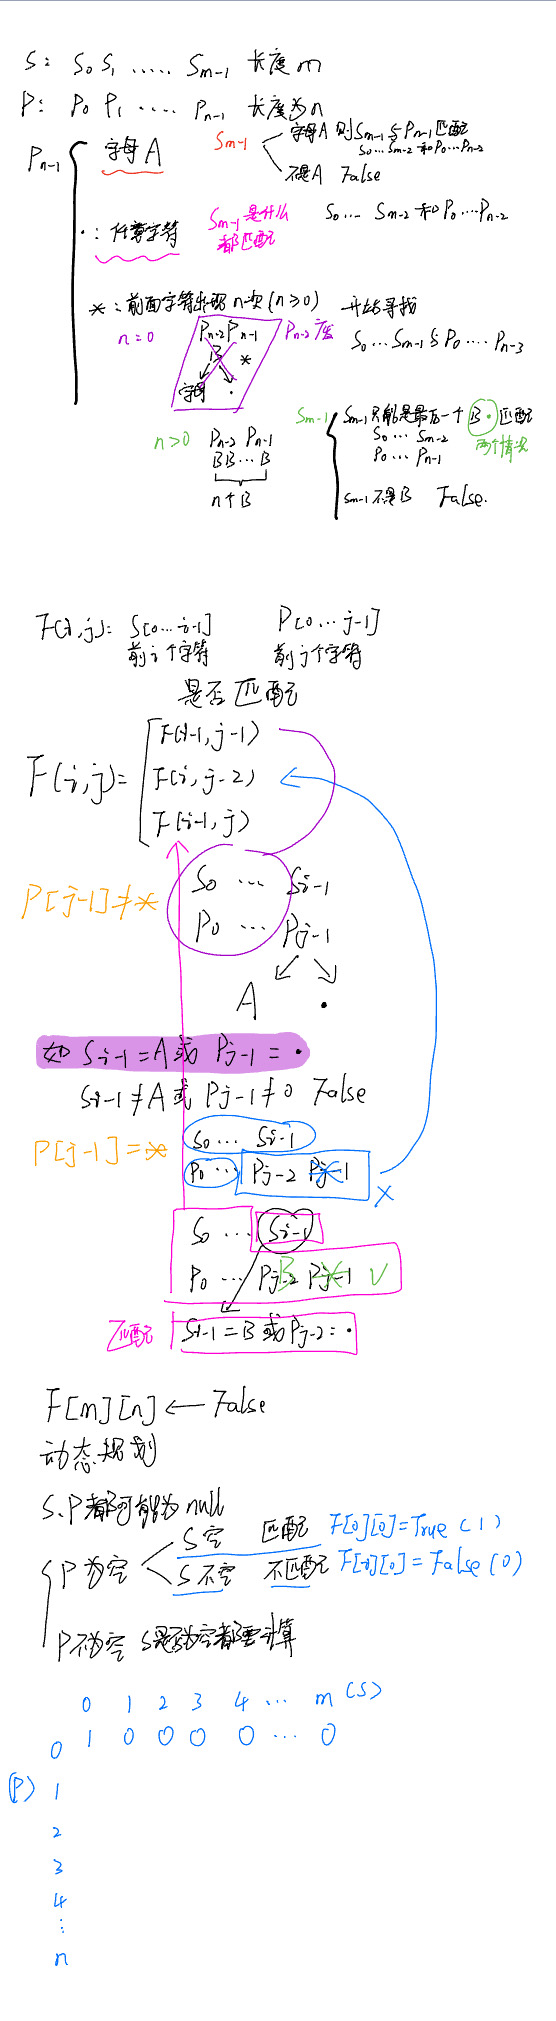 S: S0 S1 ..... Sm-1 长度 m
P: P0 P1 ..... Pn-1 长度为n
Pn-1
字母 A
Sm-1
字母A 则Sm-1与Pn-1匹配
S0...Sm-2 和P0...Pn-2
不是A False
·: 任意字符
Sm-1是什么
都匹配
S0... Sm-2 和 P0...Pn-2
*: 前面字符出现 n次 (n≥0) 开始寻找
n=0
Pn-2 Pn-1
B *
字母 ·
Pn-2
S0...Sm-1与 P0.... Pn-3
n>0
Pn-2 Pn-1
BB...B
n个B
Sm-1
Sm-1只能是最后一个 B · 匹配
两个情况
S0... Sm-2
P0... Pn-1
Sm-1 不是B False.
F(i,j): S[0...i-1] P[0...j-1]
前i个字符 前j个字符
是否匹配
F(i,j)=
F(i-1,j-1)
F(i,j-2)
F(i-1,j)
P[j-1]≠*
S0 ... Si-1
P0 ... Pj-1
A ·
如 Si-1=A或 Pj-1=·
Si-1≠A或 Pj-1≠0 False
P[j-1]=*
S0... Si-1
P0... Pj-2 Pj-1 *
×
S0 ... Si-1
P0 ... Pj-2 B Pj-1 * √
匹配 Si-1=B或Pj-2=·
F[m][n]← False
动态规划
S.P都可能为null
P为空
S空 匹配 F[0][0]=True(1)
S不空 不匹配 F[i][0]=False(0)
P不为空 S是否为空都要计算
0 1 2 3 4 ... m (S)
0 1 0 0 0 0 ... 0
(P) 1
2
3
4
⋮
n